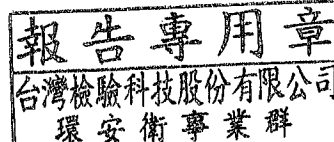 報告專用章
台灣檢驗科技股份有限公司
環安衛事業群